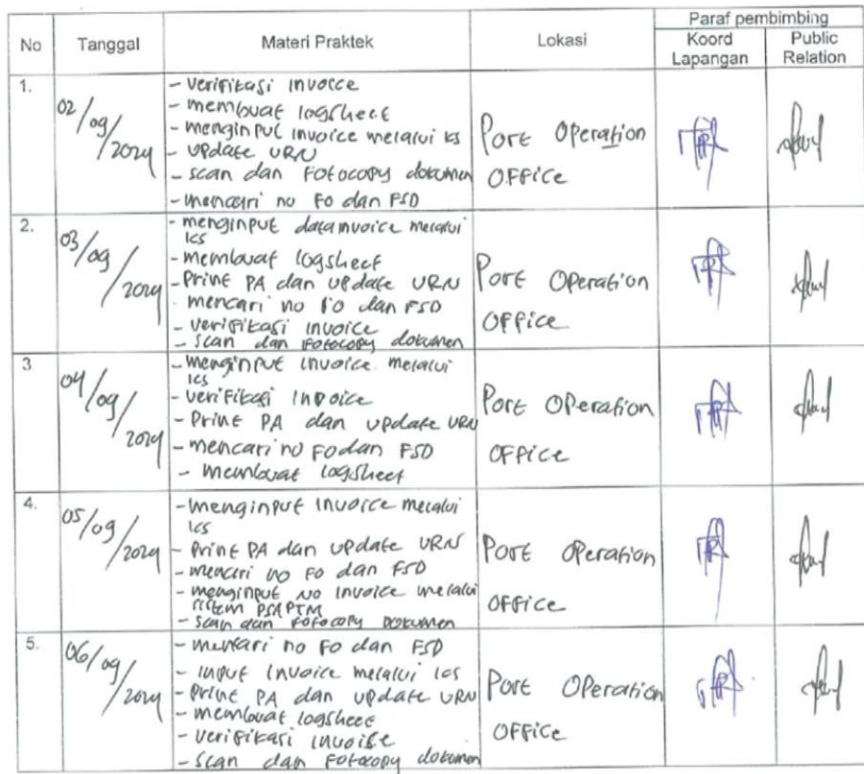 Paraf pembimbing
No Tanggal Materi Praktek Lokasi Koord Lapangan Public Relation
1.
02/09/2024
- Verifikasi invoice
- membuat logsheet
- menginput invoice melalui ics
- update URN
- scan dan Fotocopy dokumen
- mencari no Fo dan FSD
Port Operation
OFFice
2.
03/09/2024
- menginput data invoice melalui
ics
- membuat logsheet
- Print PA dan update URN
mencari no Fo dan FSD
- verifikasi invoice
- scan dan Fotocopy dokumen
Port Operation
OFFice
3
04/09/2024
- menginput invoice melalui
ics
- verifikasi invoice
- Print PA dan update URN
- mencari no Fo dan FSD
- membuat logsheet
Port Operation
OFFice
4.
05/09/2024
- menginput invoice melalui
ics
- Print PA dan update URN
- mencari no Fo dan FSD
- menginput no invoice melalui
sistem PSAPTM
- Scan dan Fotocopy Dokumen
Port Operation
OFFice
5.
06/09/2024
- mencari no Fo dan FSD
- input invoice melalui ics
- print PA dan update URN
- membuat logsheet
- verifikasi invoice
- scan dan Fotocopy dokumen
Port Operation
OFFice